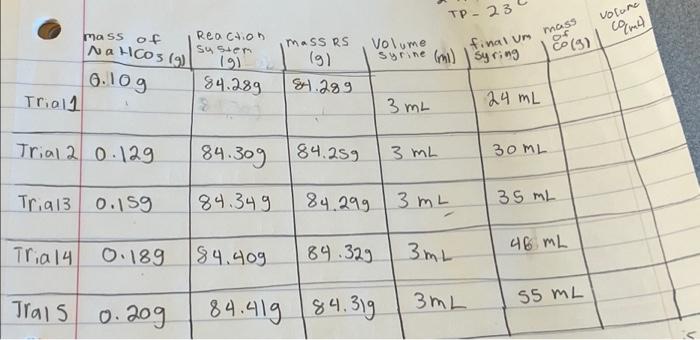 TP - 23 C
mass of NaHCO3 (g) | Reaction system (g) | mass RS (g) | Volume Syrine (ml) | final vm Syring | mass of CO (g) | volume CO (mL)
Trial 1 | 0.10g | 84.28g | 84.28g | 3 mL | 24 mL
Trial 2 | 0.12g | 84.30g | 84.25g | 3 mL | 30 mL
Trial3 | 0.15g | 84.34g | 84.29g | 3 mL | 35 mL
Trial4 | 0.18g | 84.40g | 84.32g | 3mL | 46 mL
Tral 5 | 0.20g | 84.41g | 84.31g | 3mL | 55 mL